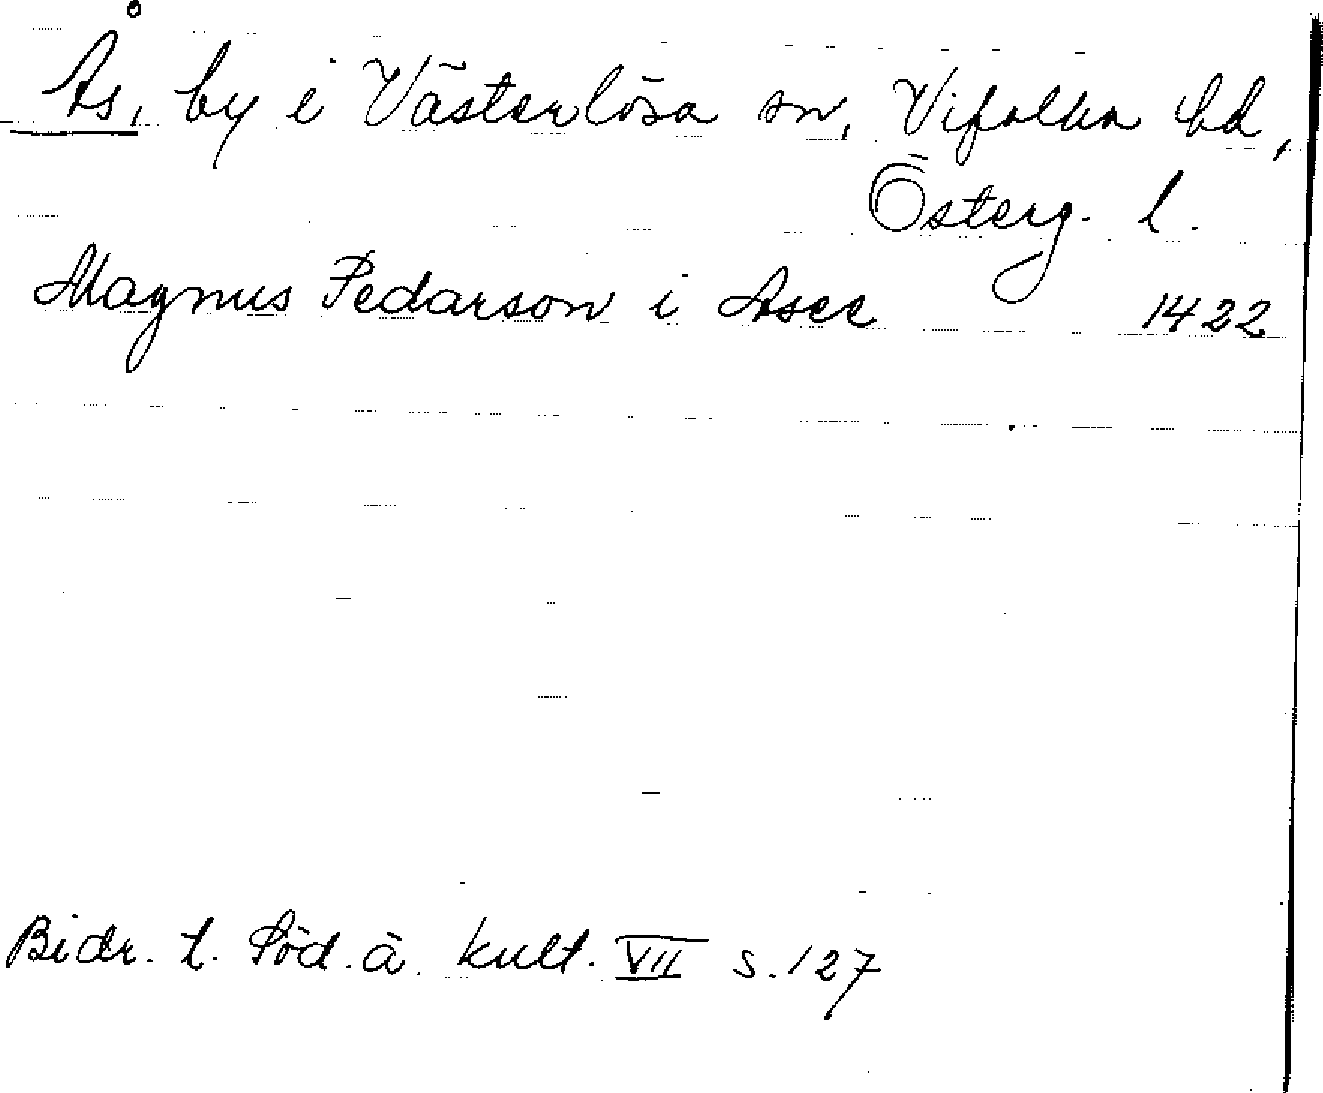 Ås, by i Västerlösa sn, Vifolka hd,
Österg. l.
Magnus Pedarson i Asee 1422
Bidr. t. Söd. ä. kult. VII s. 127